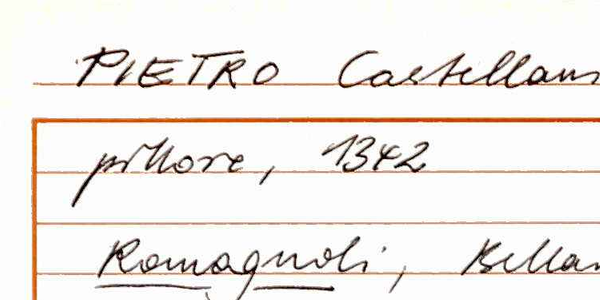 PIETRO Castellan
pittore, 1342
Romagnoli, Bellar